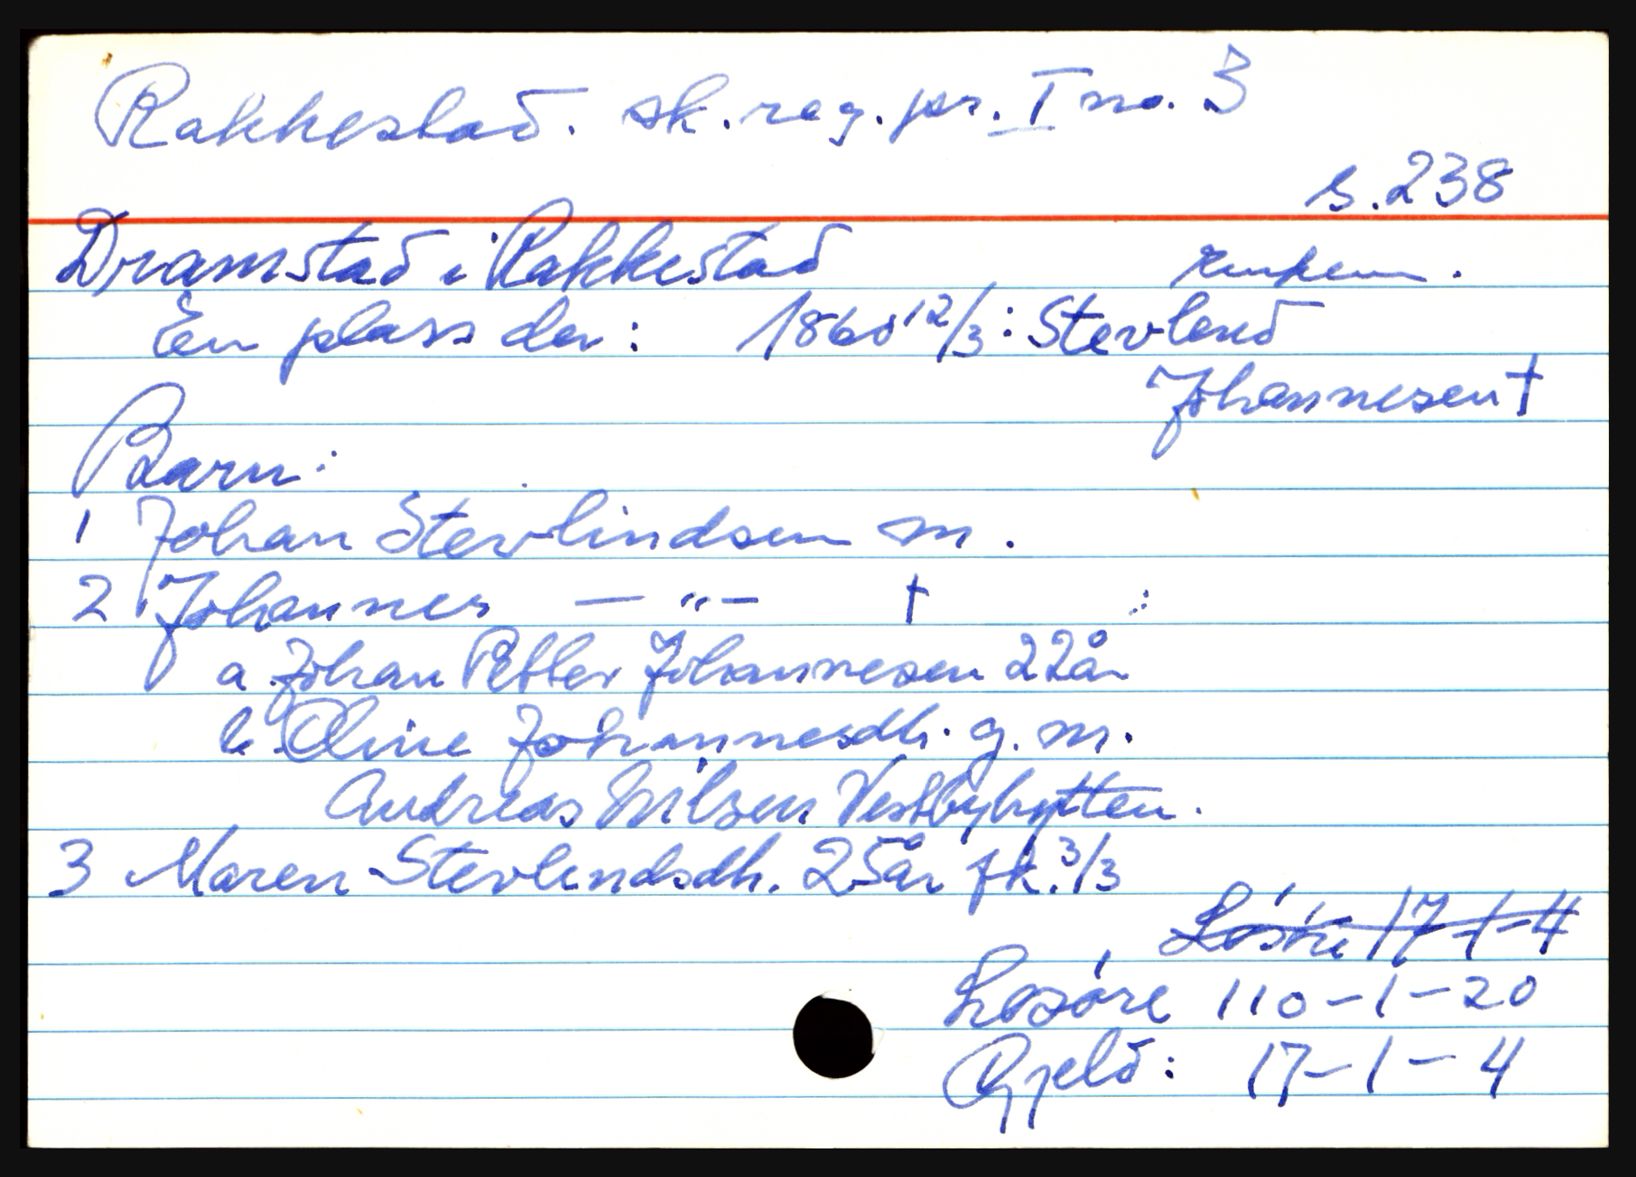 Rakkestad. sk. reg. pr. I no. 3
s. 238
Dramstad i Rakkestad enkem.
En plass der: 1860 12/3: Stevlend
Johannesen †
Barn:
1 Johan Stevlindsen m.
2 Johannes — " — †
a. Johan Petter Johannesen 22 år
b. Oline Johannesdh. g. m.
Andreas Nilsen Vestbyhytten.
3 Maren Stevlendsdh. 25 år fk. 3/3
17-1-4
Løsøre 110-1-20
Gjeld: 17-1-4